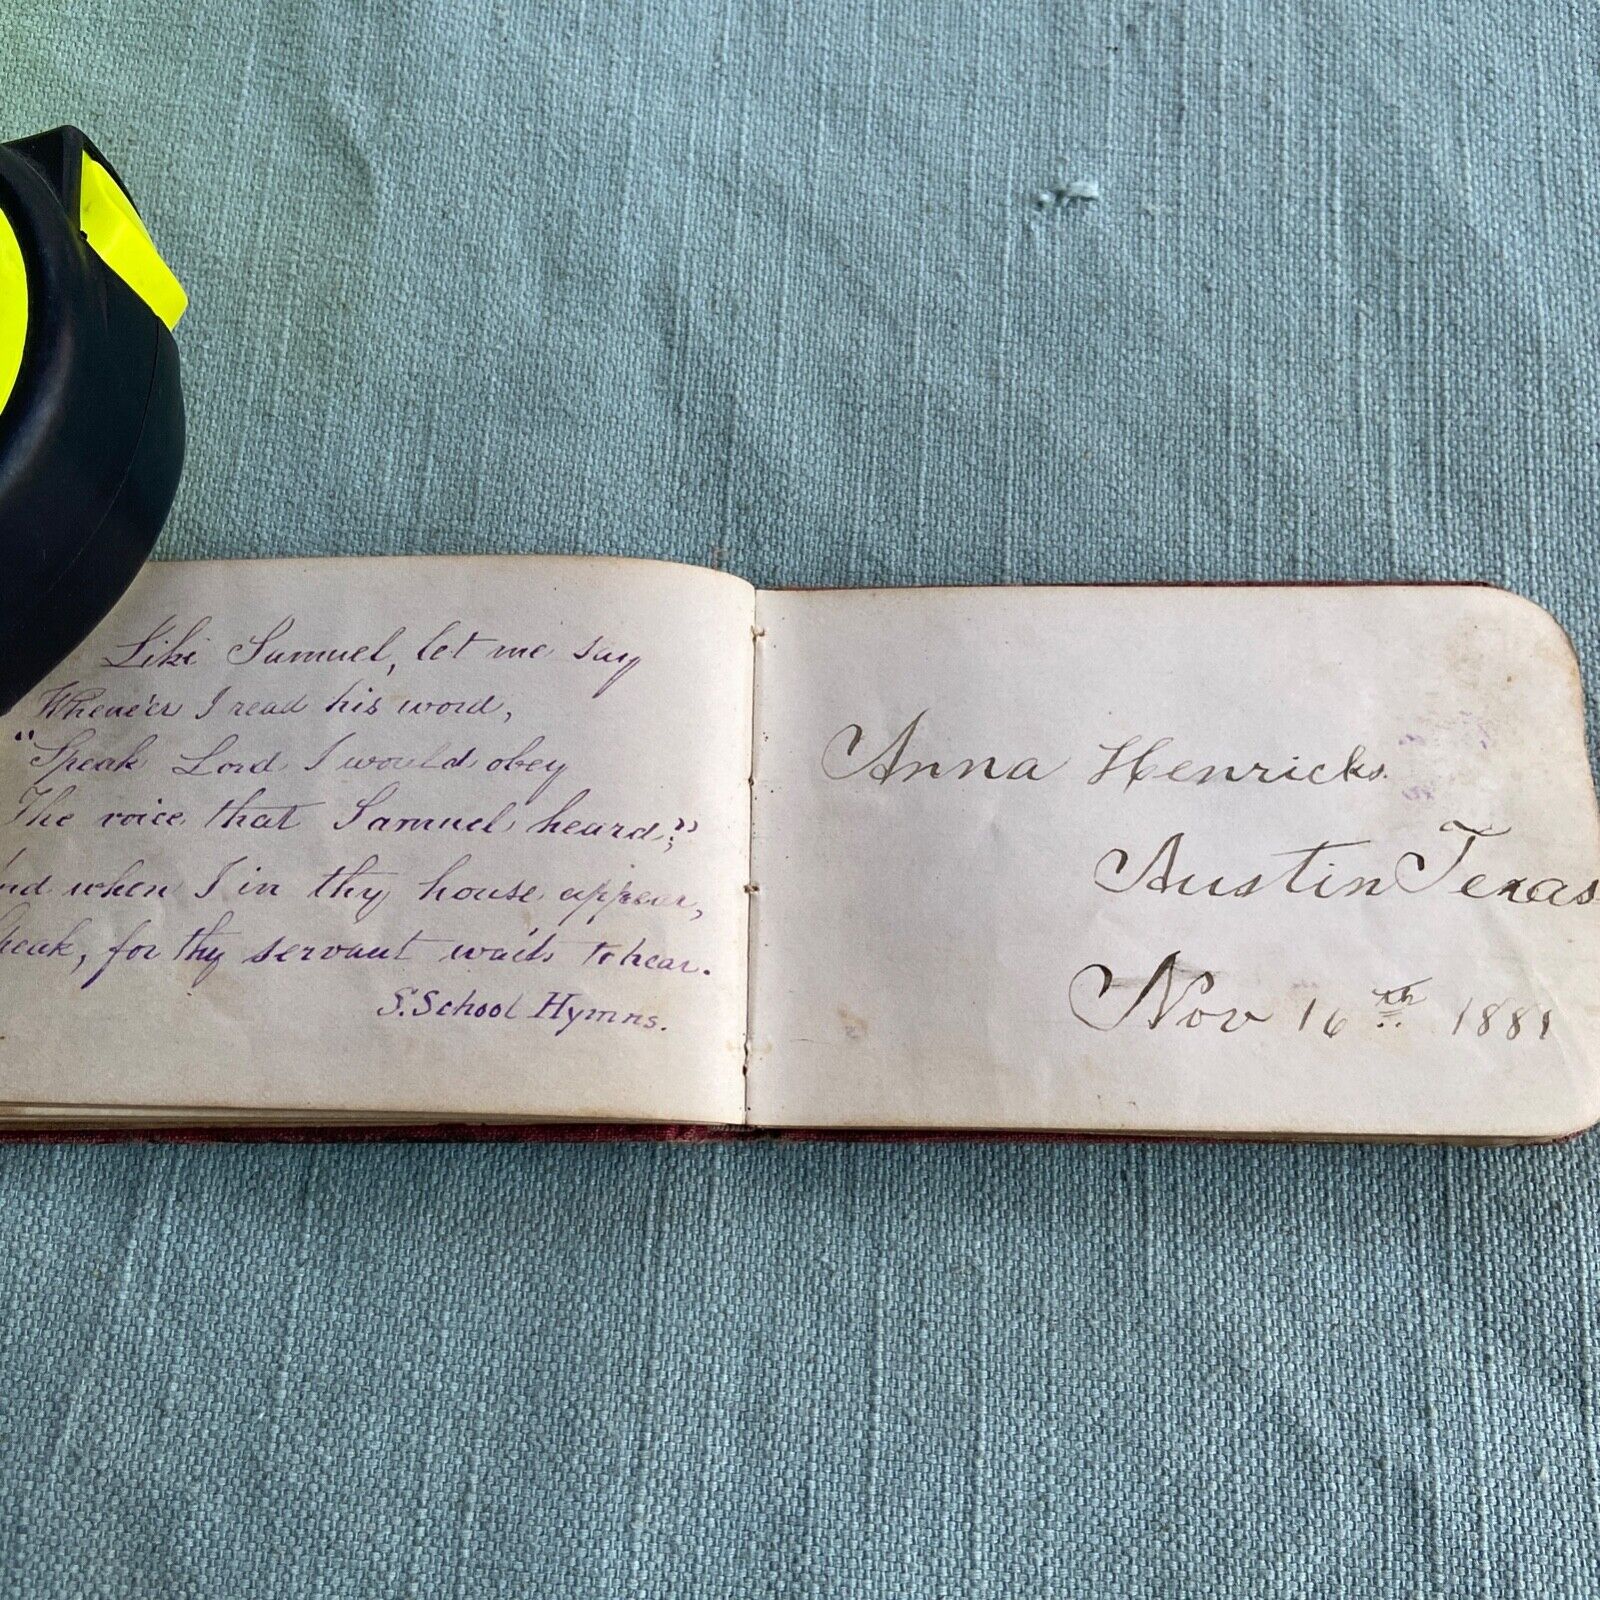 Like Samuel, let me say
Whene'er I read his word,
"Speak Lord I would obey
The voice that Samuel heard;"
nd when I in thy house appear,
peak, for thy servant waits to hear.
S. School Hymns.
Anna Henricks.
Austin Texas
Nov 16th 1881